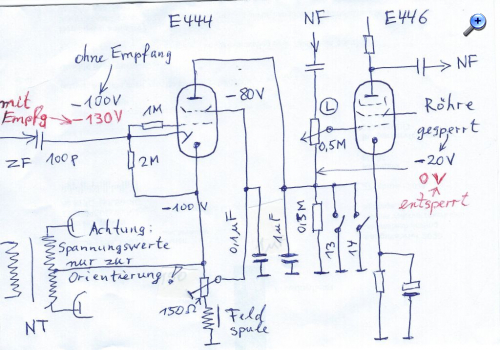 E444
NF
E446
ohne Empfang
NF
mit
Empfg
-100V
-130V
1M
-80V
L
Röhre
gesperrt
ZF
100p
2M
0,5M
-20V
0V
entsperrt
-100V
0,1µF
1µF
0,5M
13
14
Achtung:
Spannungswerte
nur zur
Orientierung!
150Ω
NT
Feld
spule